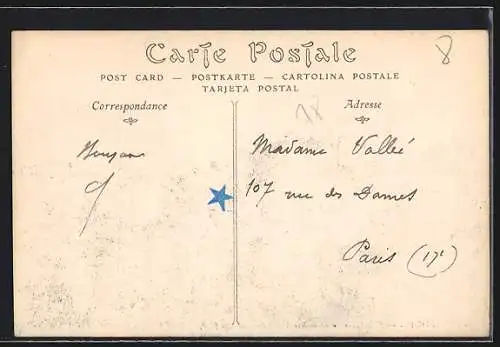 8
Carte Postale
POST CARD — POSTKARTE — CARTOLINA POSTALE
TARJETA POSTAL
Correspondance
Adresse
Madame Vallée
107 rue des Dames
Paris (17e)